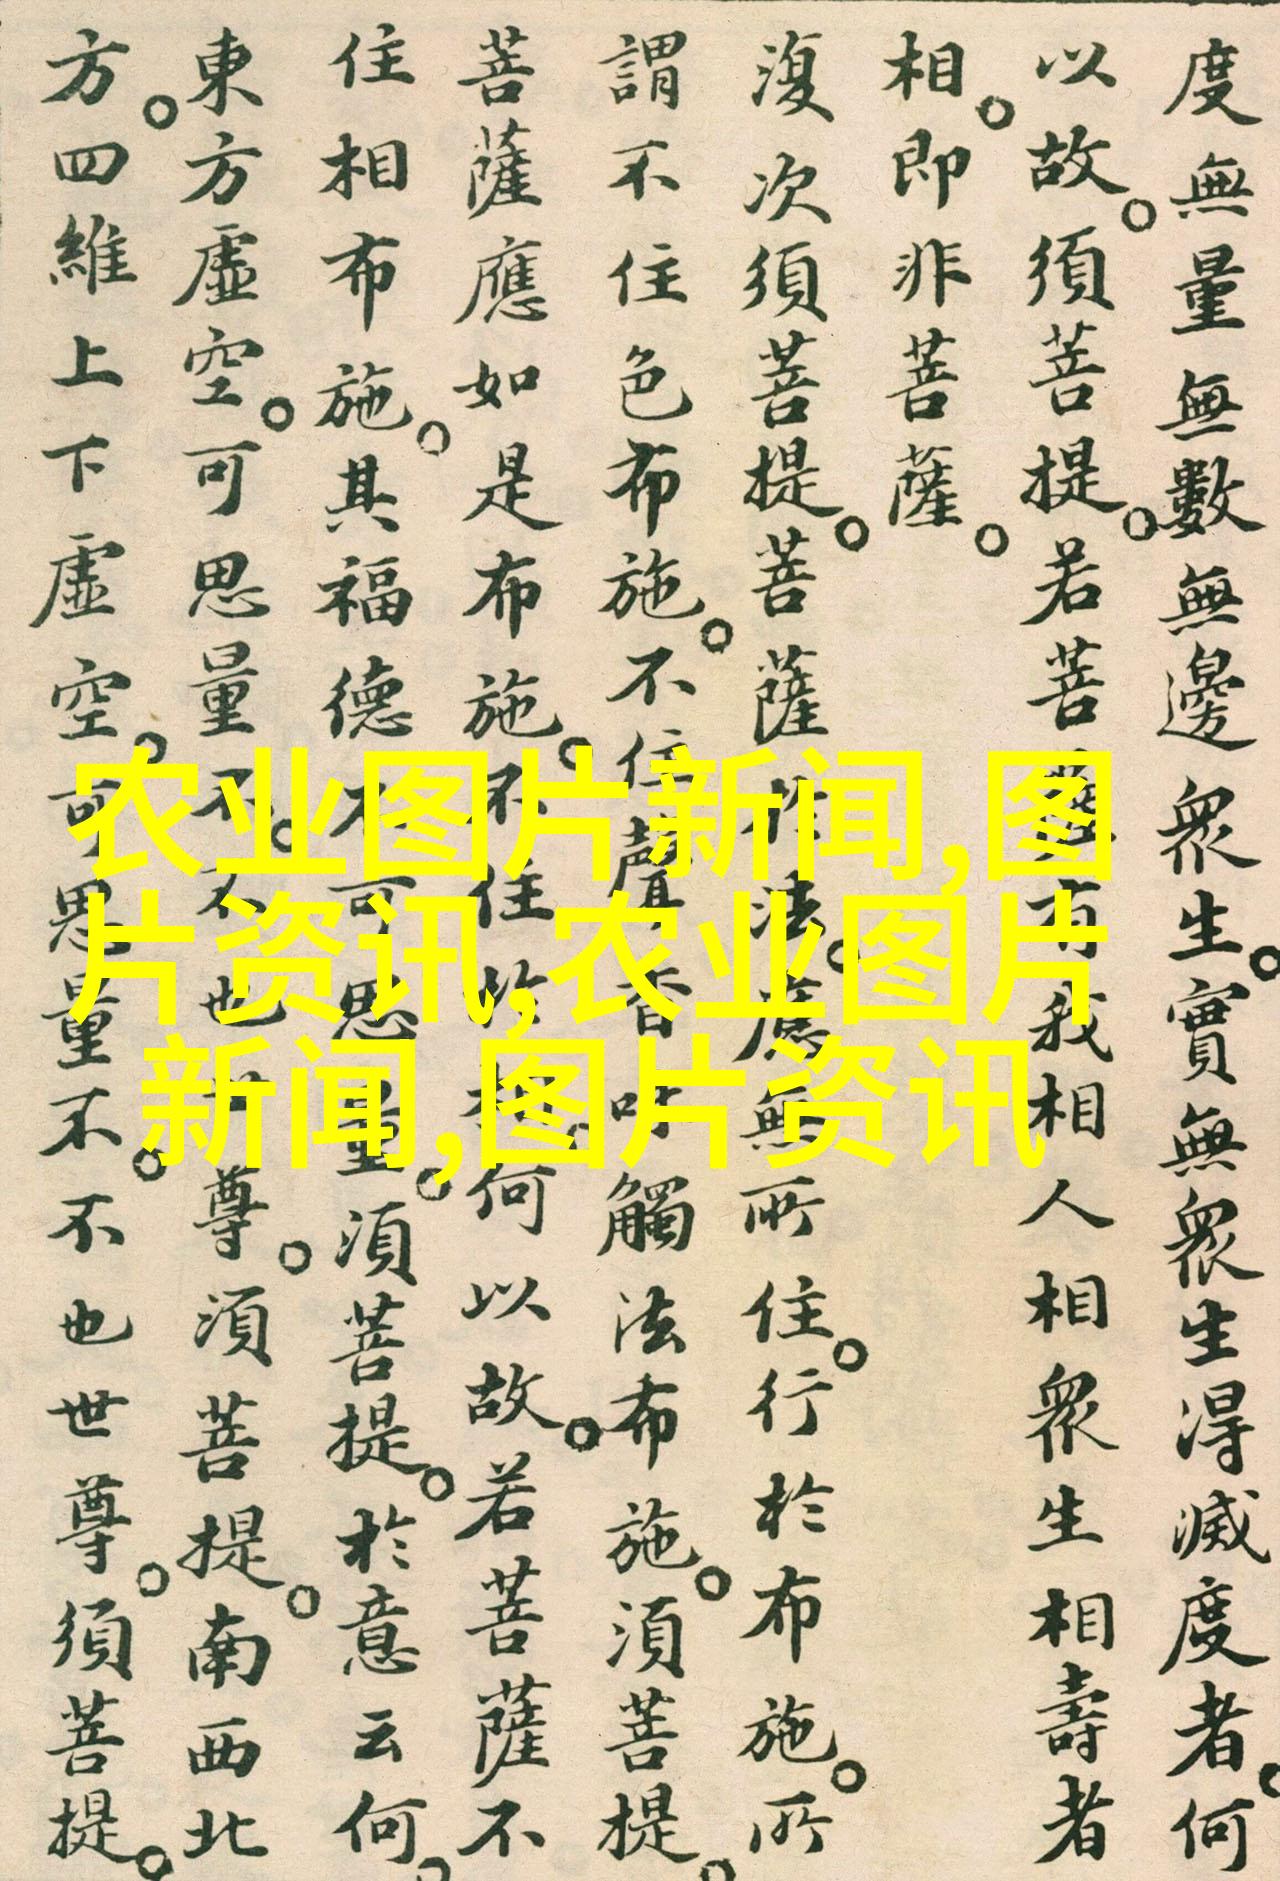 度無量無數無邊眾生。實無眾生得滅度者。何
以故。須菩提。若菩薩有我相人相眾生相壽者
相。即非菩薩。
復次須菩提。菩薩於法。應無所住。行於布施。所
謂不住色布施。不住聲香味觸法布施。須菩提。
菩薩應如是布施。不住於相。何以故。若菩薩不
住相布施。其福德不可思量。須菩提。於意云何。
東方虛空。可思量不。不也世尊。須菩提。南西北
方。四維上下虛空。可思量不。不也世尊。須菩提。
农业图片新闻,图
片资讯,农业图片
新闻,图片资讯